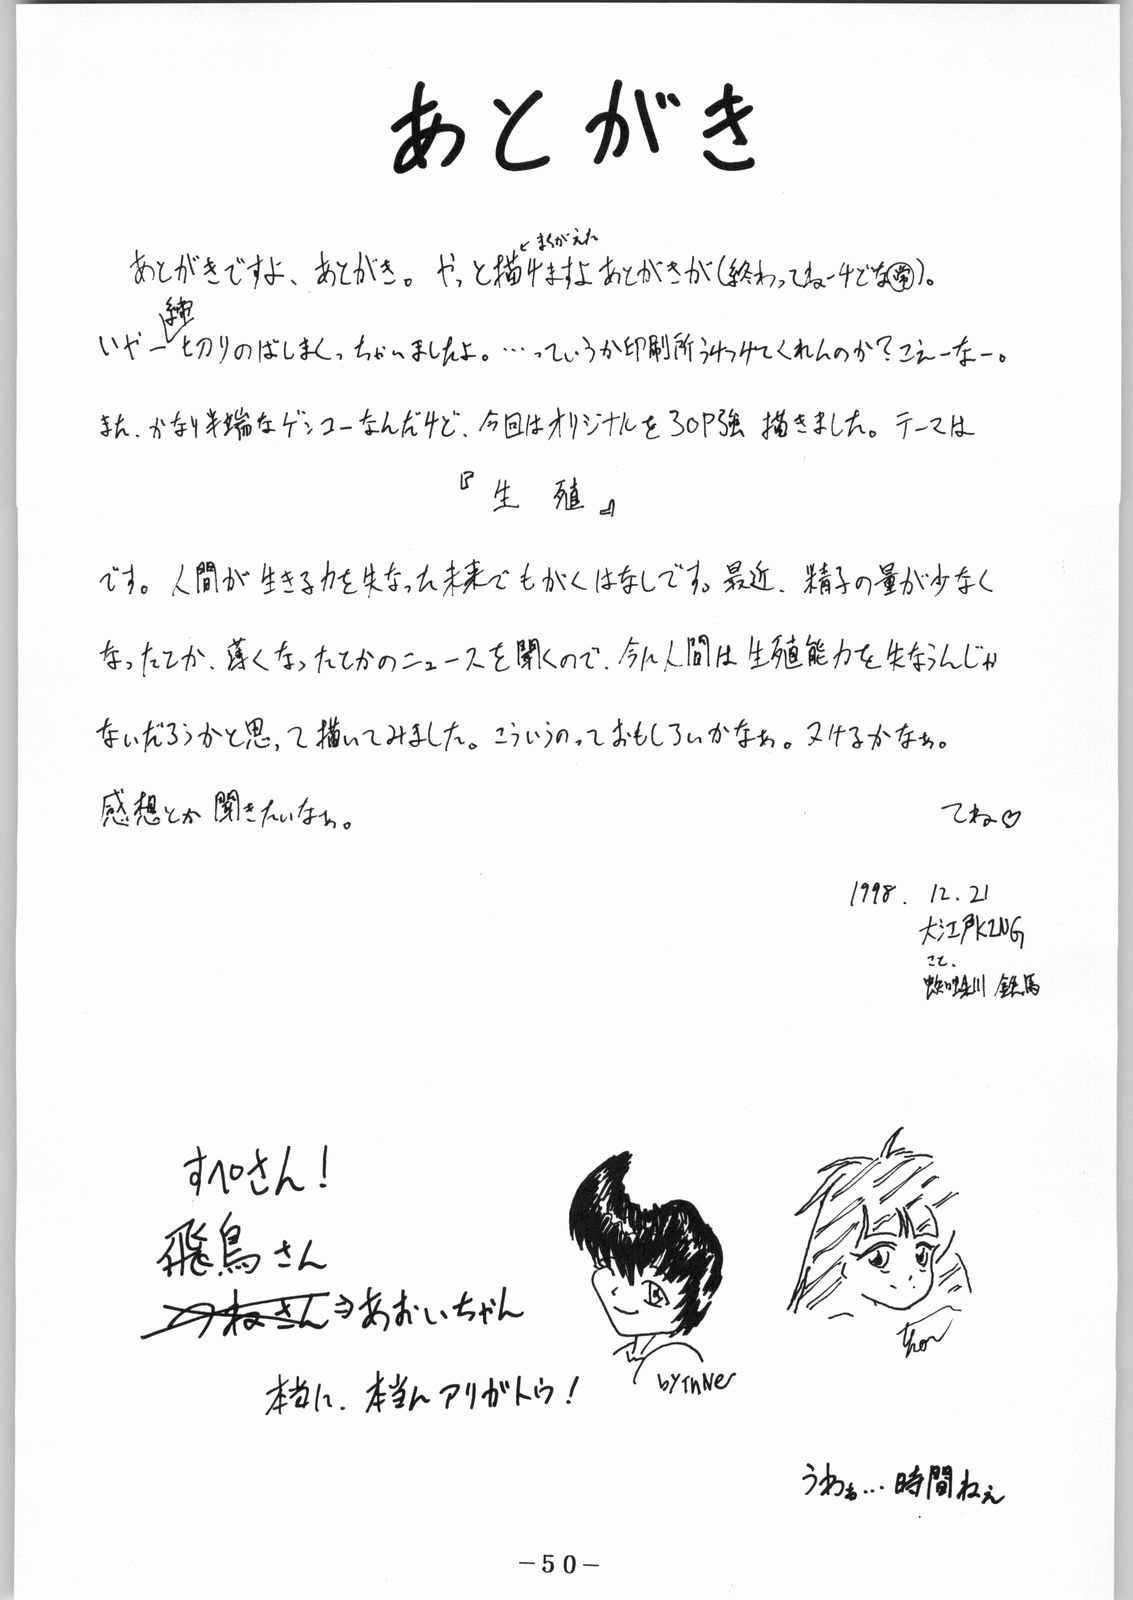 あとがき
まちがえた
あとがきですよ、あとがき。やっと描けますよあとがきが(終わってねーけどな常)。
いやー練切りのばしまくっちゃいましたよ。…っていうか印刷所うけつけてくれんのか?こえーなー。
また、かなり半端なゲンコーなんだけど、今回はオリジナルを30P強描きました。テーマは
『生殖』
です。人間が生きる力を失なった未来でもがくはなしです。最近、精子の量が少なく
なったてか、薄くなったてかのニュースを聞くので、今に人間は生殖能力を失なうんじゃ
ないだろうかと思って描いてみました。こういうのっておもしろいかなぁ。ヌけるかなぁ。
感想とか聞きたいなぁ。
てね♡
1998.12.21
大江戸KING
こと、
蜘蛛川 鉄馬
すぺさん!
飛鳥さん
つねさん⇒あおいちゃん
本当に、本当にアリガトウ!
by Inner
うわぁ…時間ねぇ
-50-